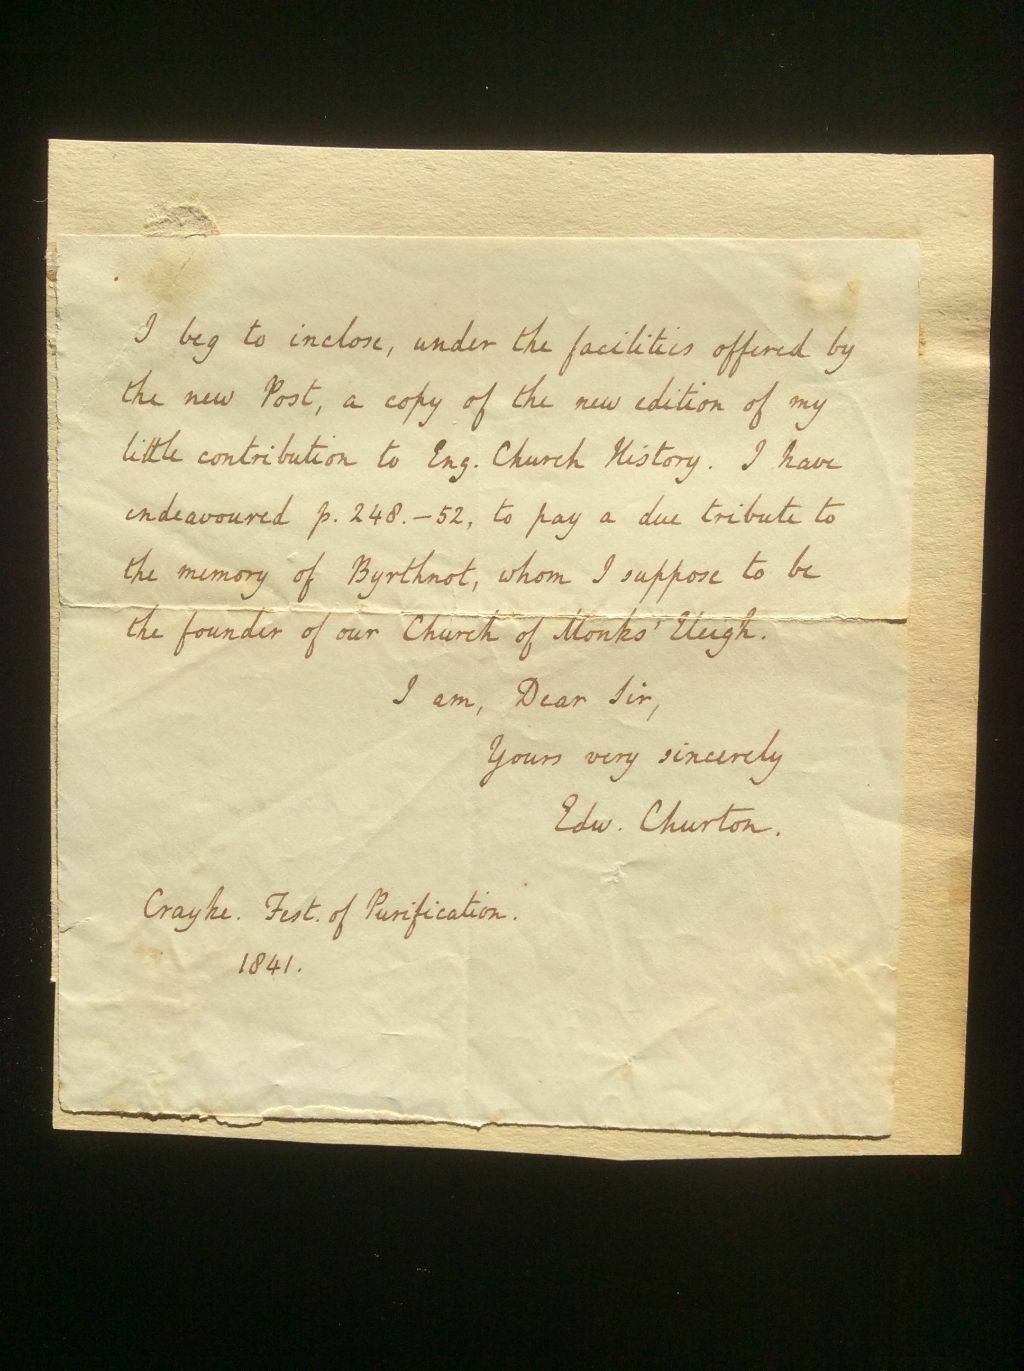 I beg to inclose, under the facilities offered by
the new Post, a copy of the new edition of my
little contribution to Eng. Church History. I have
endeavoured p. 248.-52, to pay a due tribute to
the memory of Byrthnot, whom I suppose to be
the founder of our Church of Monks' Eleigh.
I am, Dear Sir,
Yours very sincerely
Edw. Churton.
Crayke. Fest. of Purification.
1841.